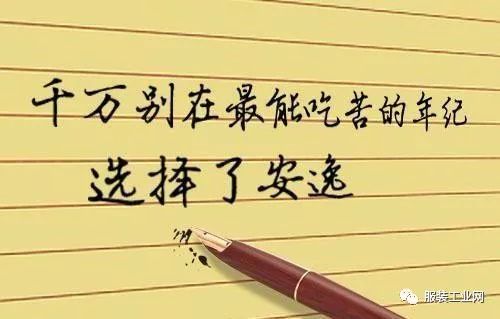 千万别在最能吃苦的年纪
选择了安逸
服装工业网